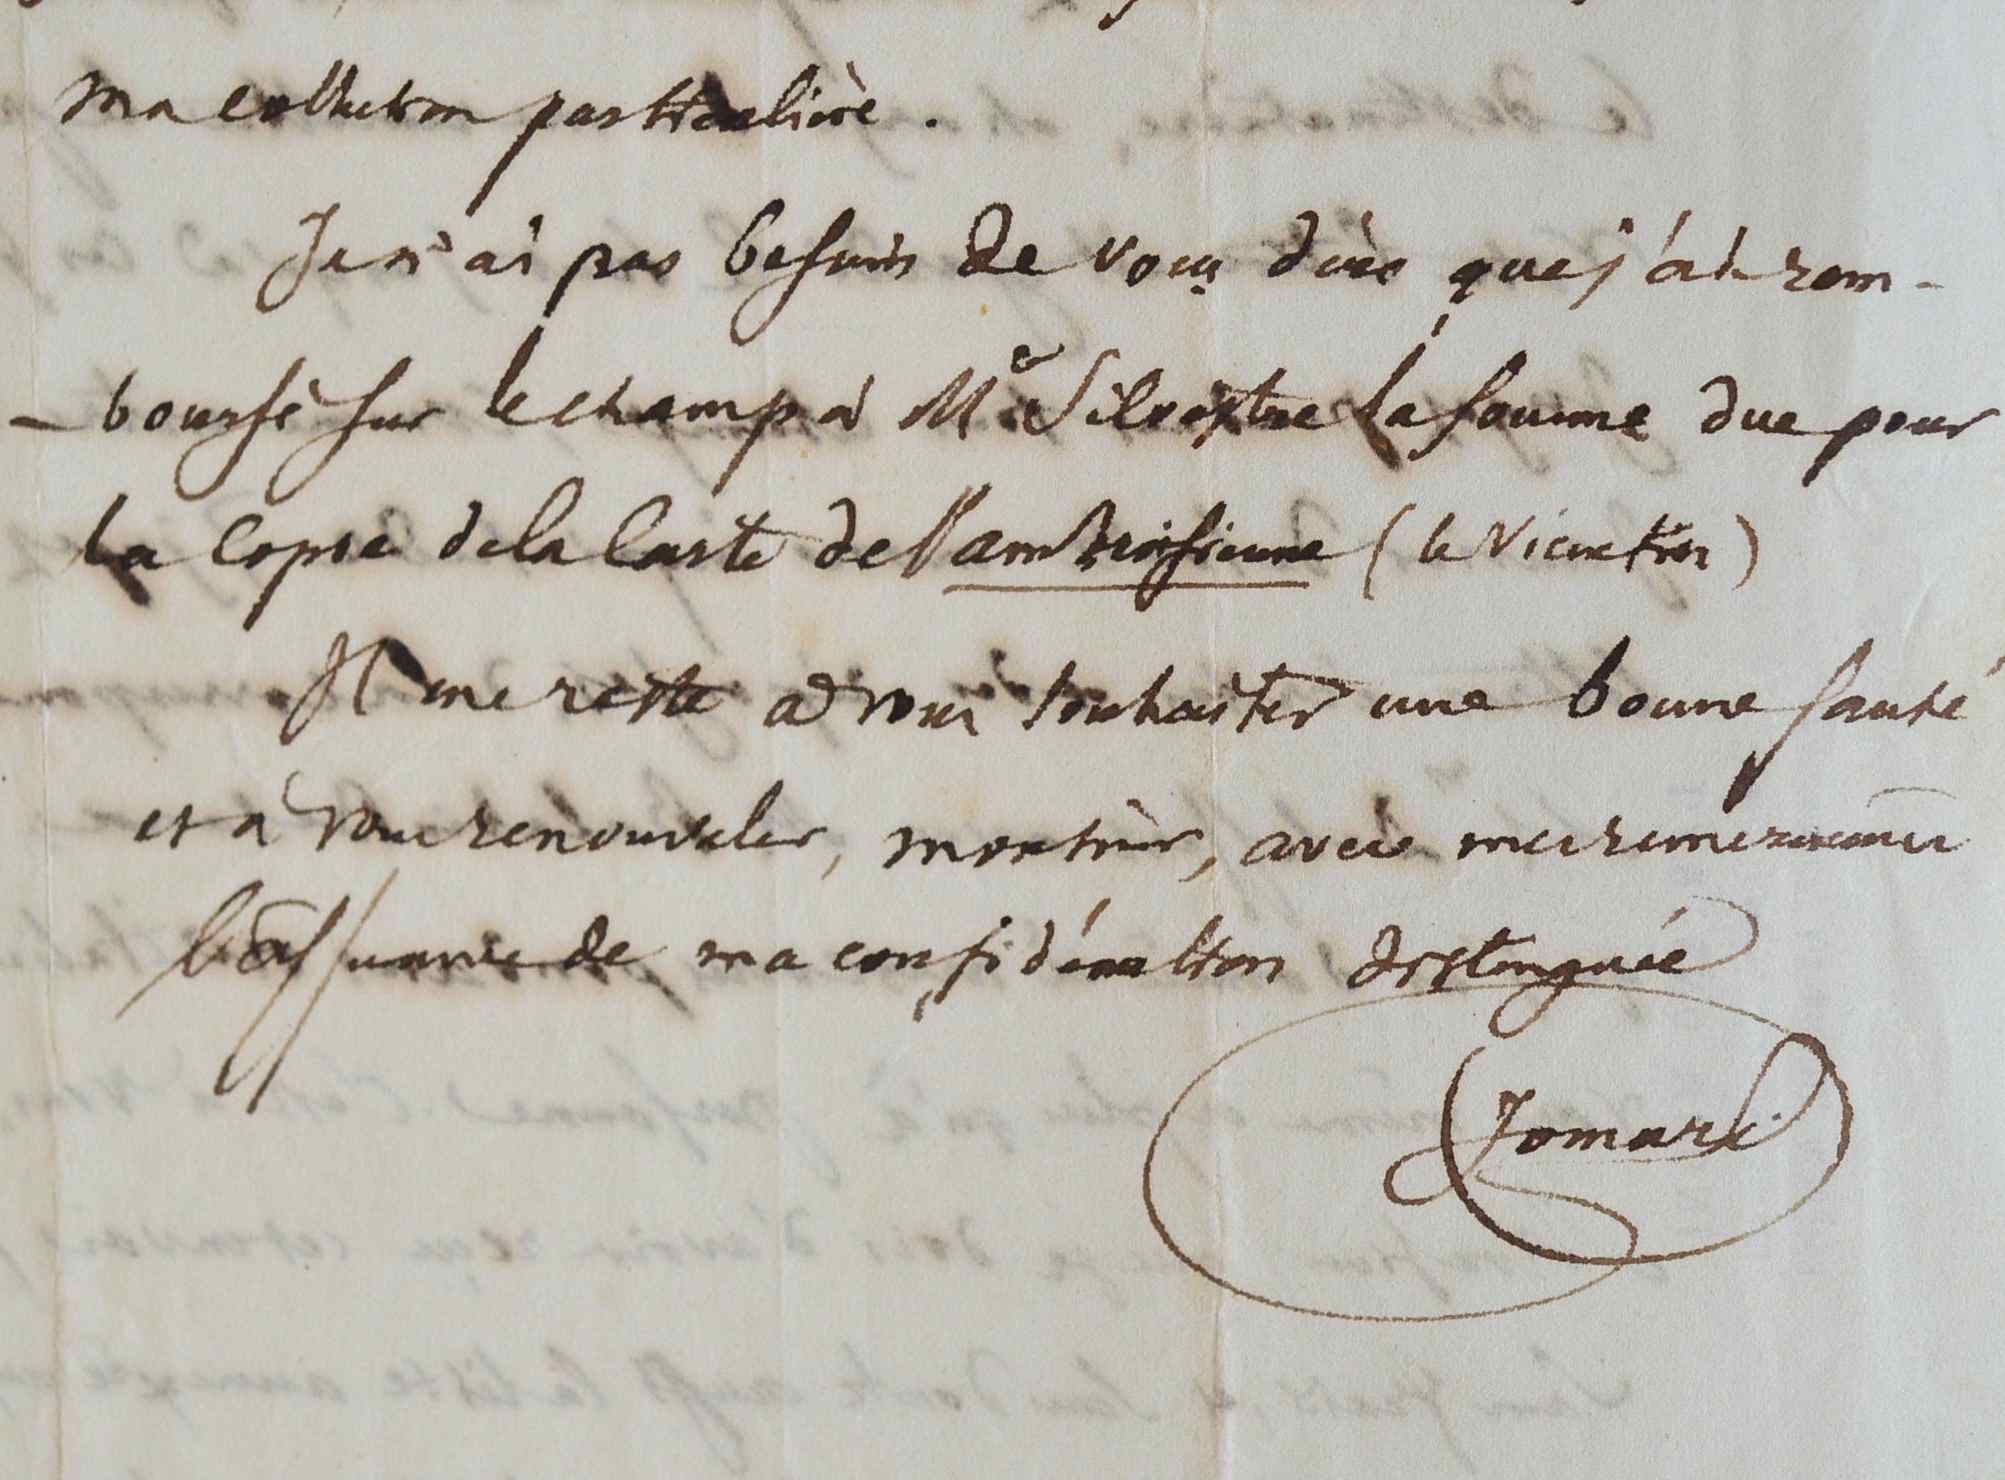 ma collection particulière.
Je n'ai pas besoin de vous dire que j'ai rem-
-boursé sur le champ à Mr Silvestre la somme due pour
la Copie de la Carte de l'ambroisienne (le Vicentin)
Il me reste à vous souhaiter une bonne santé
et à vous renouveler, monsieur, avec mes remerciemens
l'assurance de ma considération distinguée
Jomard